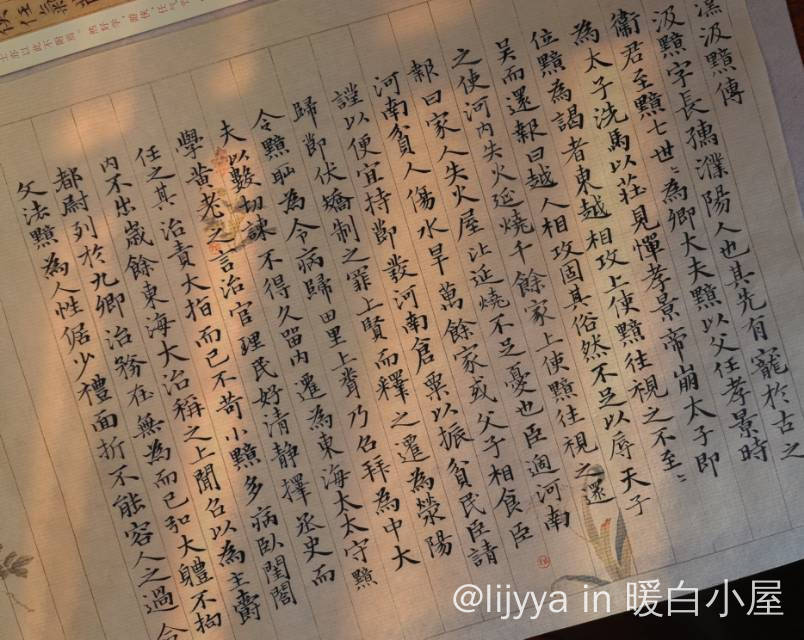 漢汲黯傳
汲黯字長孺濮陽人也其先有寵於古之
衞君至黯七世〻為卿大夫黯以父任孝景時
為太子洗馬以莊見憚孝景帝崩太子即
位黯為謁者東越相攻上使黯往視之不至〻
吳而還報曰越人相攻固其俗然不足以辱天子
之使河内失火延燒千餘家上使黯往視之還
報曰家人失火屋比延燒不足憂也臣過河南
河南貧人傷水旱萬餘家或父子相食臣
謹以便宜持節發河南倉粟以振貧民臣請
歸節伏矯制之罪上賢而釋之遷為滎陽
令黯恥為令病歸田里上聞乃召拜為中大
夫以數切諫不得久留内遷為東海太太守黯
學黃老之言治官理民好清静擇丞史而
任之其治責大指而已不苛小黯多病臥閨閤
内不出歲餘東海大治稱之上聞召以為主爵
都尉列於九卿治務在無為而已弘大體不拘
文法黯為人性倨少禮面折不能容人之過合
士亦以此不附焉。然好学，游侠，任气节
@lijyya in 暖白小屋